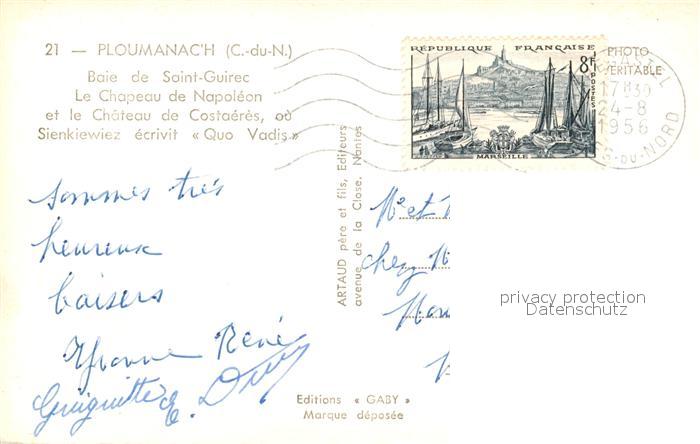 21 — PLOUMANAC'H (C.-du-N.)
Baie de Saint-Guirec
Le Chapeau de Napoléon
et le Château de Costaérès, où
Sienkiewiez écrivit « Quo Vadis »
sommes très
heureux
baisers
Yvonne René
Guiguitte E.
ARTAUD père et fils, Editeurs
avenue de la Close. Nantes
RÉPUBLIQUE FRANÇAISE
8F
POSTES
MARSEILLE
PHOTO
VERITABLE
17H30
24-8
1956
-DU-NORD
et
chez
privacy protection
Datenschutz
Editions « GABY »
Marque déposée